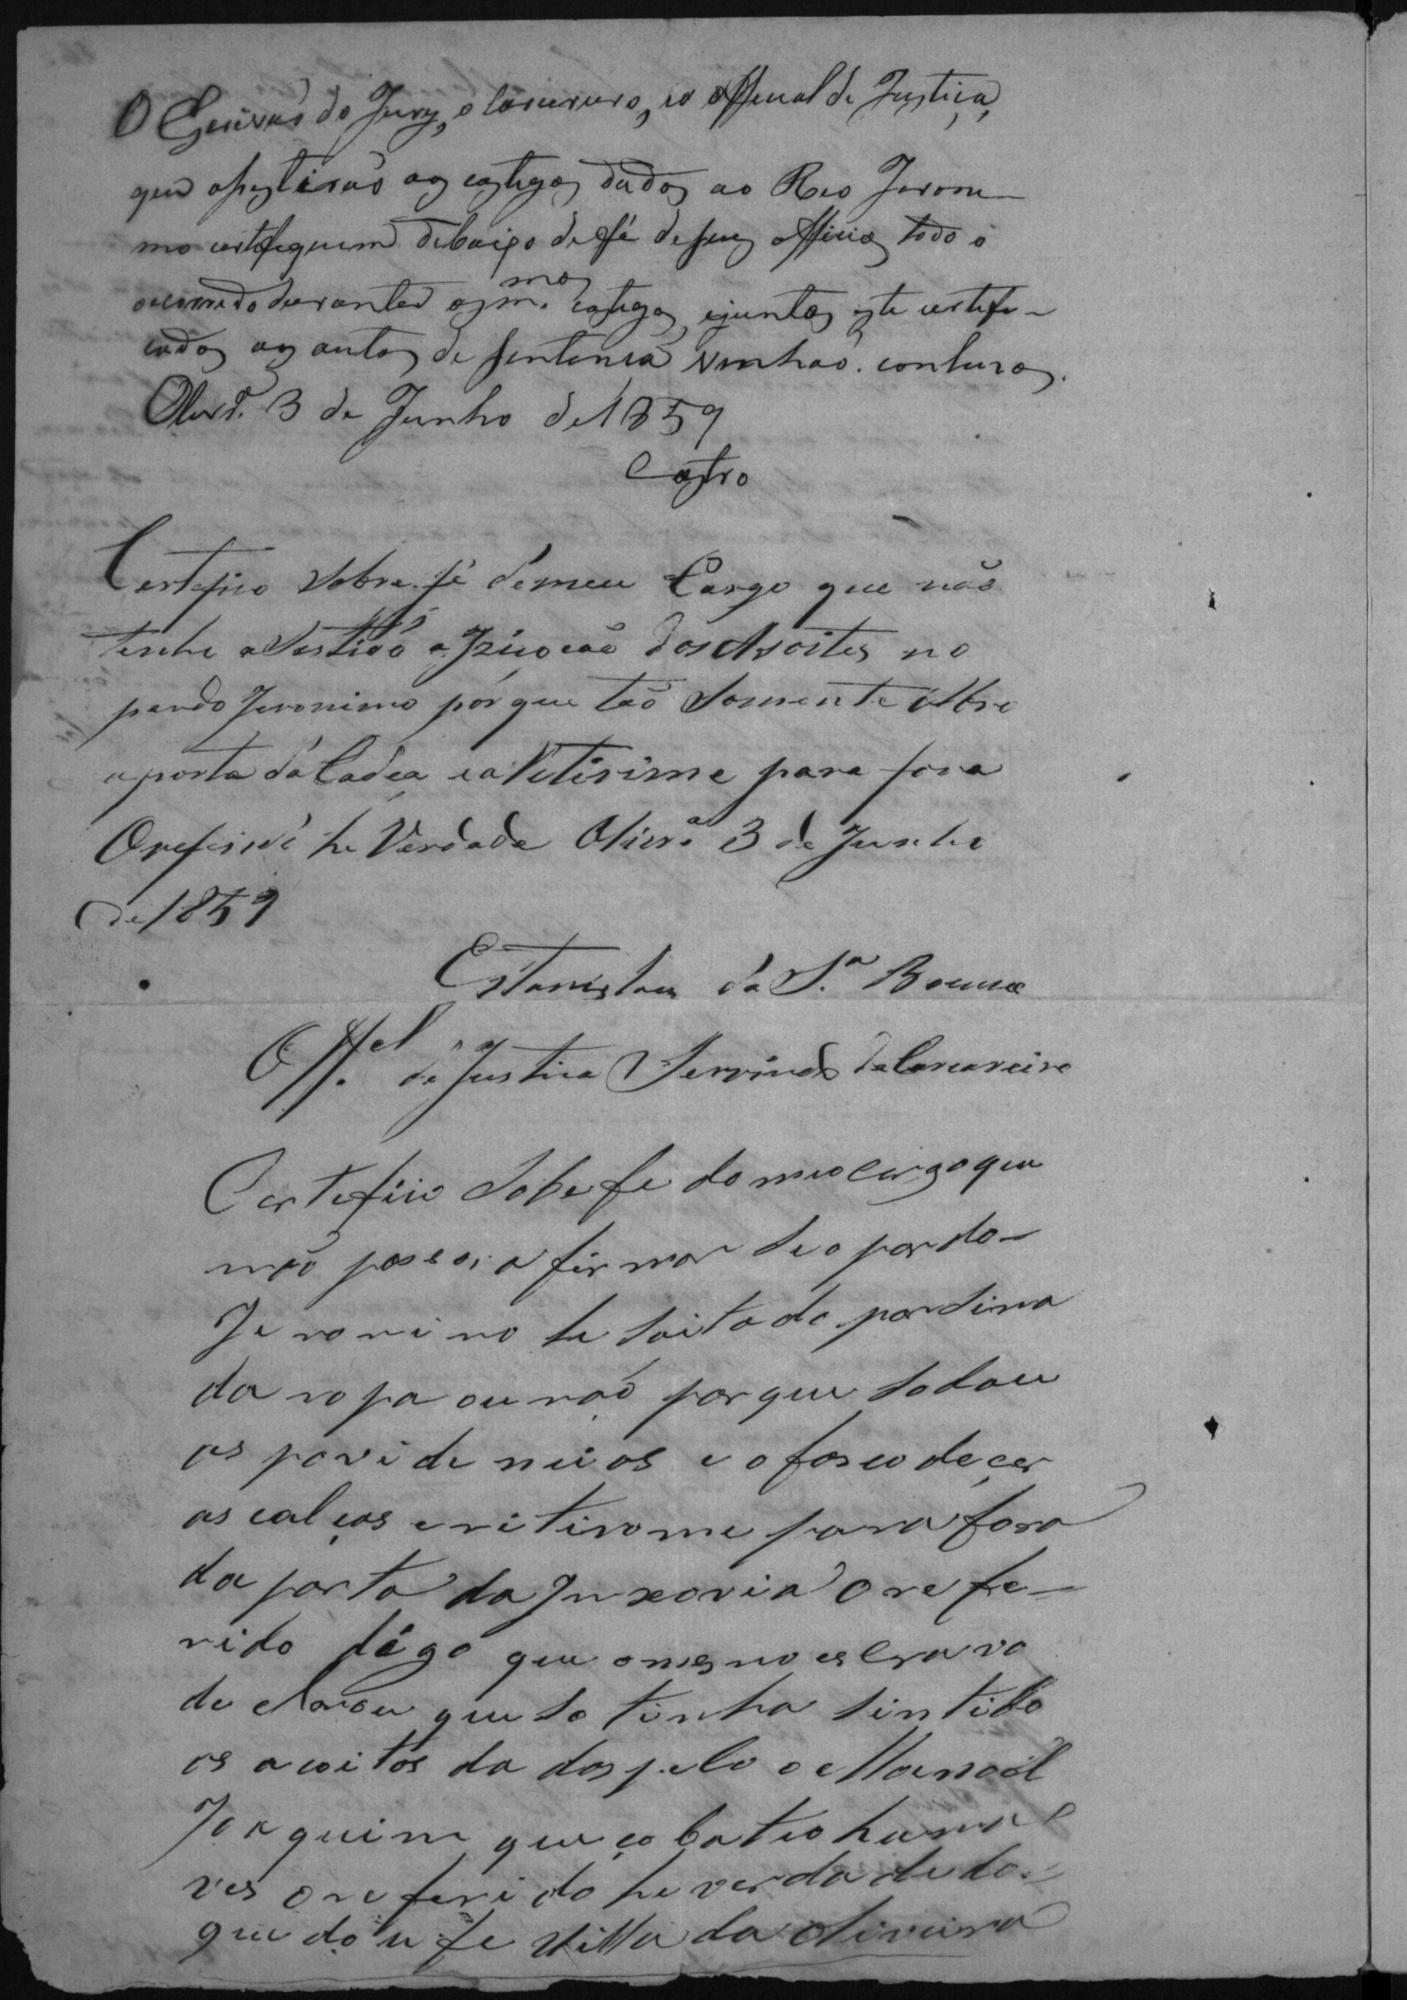 O Escrivaõ do Jury, o Carcereiro, eo Official de Justiça,
que assistiraõ aos castigos dados ao Reo Jeroni-
mo certifiquem debaixo de fé de seus officios todo o
ocorrido durante os m.mos castigos, ejuntos este certifi-
cados aos autos de sentença venhaõ conluzos.
Olivr.ª 3 de Junho de 1859
Castro
Certefico Sobre fé démeu Cargo que naõ
tenho aSestido a Izicocaõ dos Asoites no
pardo Jeronimo pórque taõ Somente Abro
aporta dáCadea eaRetirime para fora
Oreferido he Verdade Olivr.ª 3 de Junho
de 1859
Estanislau dá S.ª
Off.el de Justica Servindo de Carcareiro
Certefico Sobe fe do meo cargo que
não posso afirmar Se o pardo
Jeronimo he soitado porsima
da ropa ou naõ porque so dou
as providencias e o faso deçer
as calças e ritirome para fora
da porta da Inxovia O refe-
rido digo que omesmo escravo
declarou que so tinha sintido
os acoites dados pelo o Manoel
Joaquim que ço bateo huma
ves o referido he verdade do
que dou fe Villa da Oliveira